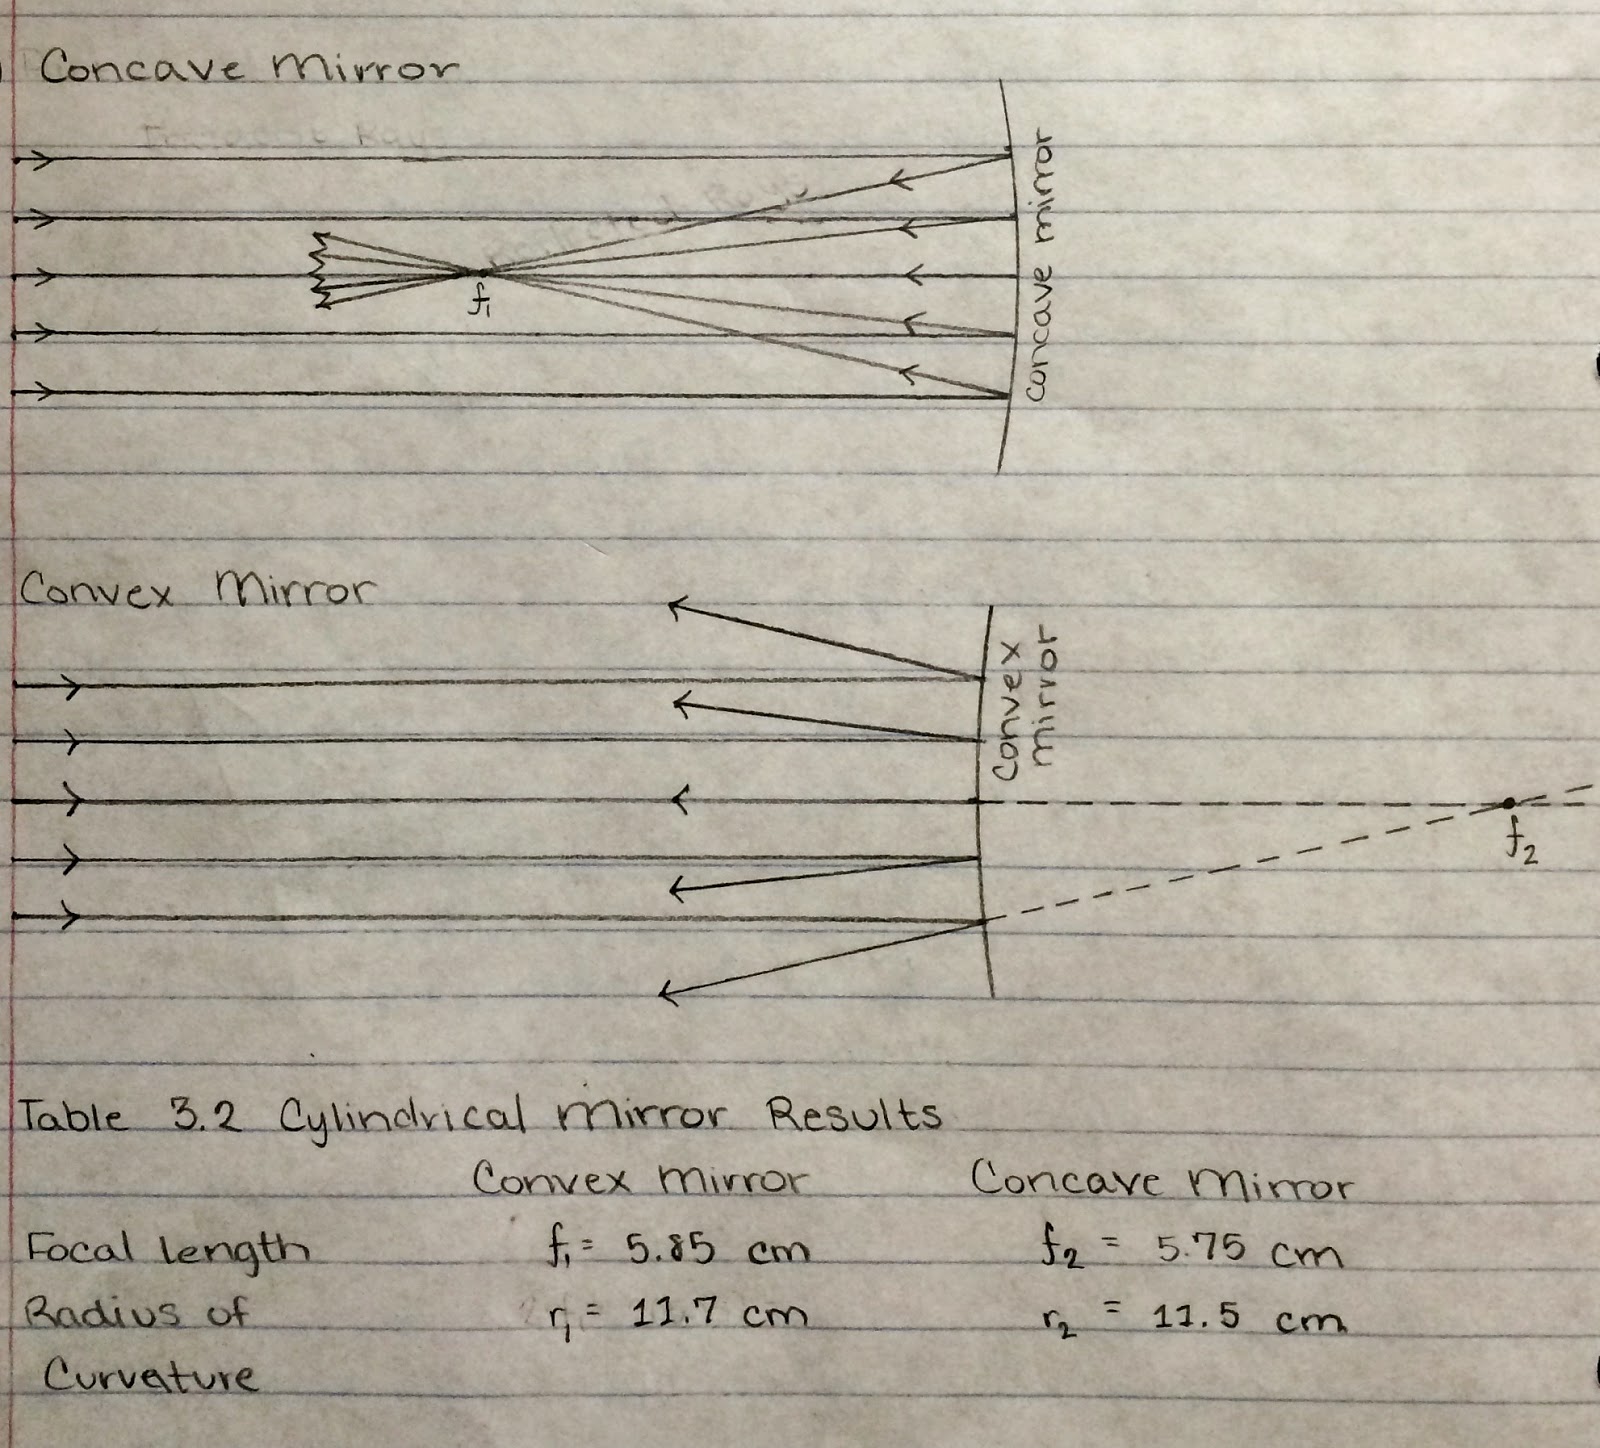 Concave Mirror
concave mirror
f₁
Convex Mirror
Convex
mirror
f₂
Table 3.2 Cylindrical Mirror Results
Convex Mirror Concave Mirror
Focal length f₁= 5.85 cm f₂ = 5.75 cm
Radius of r₁= 11.7 cm r₂ = 11.5 cm
Curvature